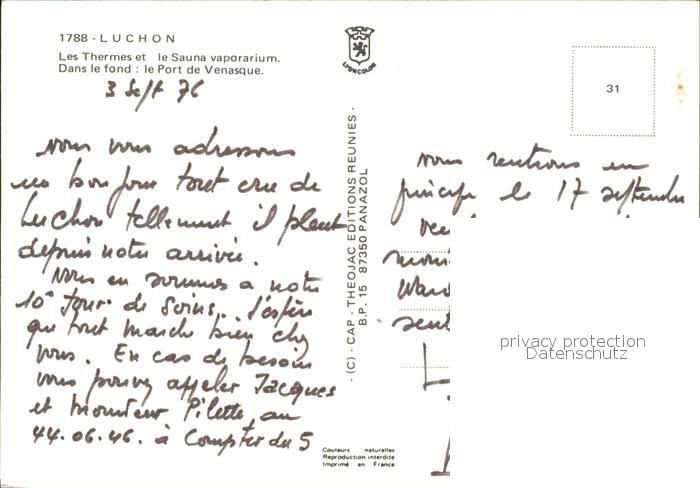 1788 - LUCHON
Les Thermes et le Sauna vaporarium.
Dans le fond : le Port de Venasque.
3 Sept 76
nous vous adressons
un bonjour tout cru de
Luchon tellement il pleut
depuis notre arrivée.
Nous en sommes a notre
10e Jour de Soins.. J'espère
que tout marche bien chez
vous. En cas de besoin
vous pouvez appeler Jacques
et Monsieur Pilette au
44.06.46. à Compter du 5
LYONCOLOR
- (C) - CAP - THEOJAC EDITIONS REUNIES -
B.P. 15 87350 PANAZOL
Couleurs naturelles
Reproduction interdite
Imprimé en France
31
nous rentrons en
principe le 17 septembre
privacy protection
Datenschutz